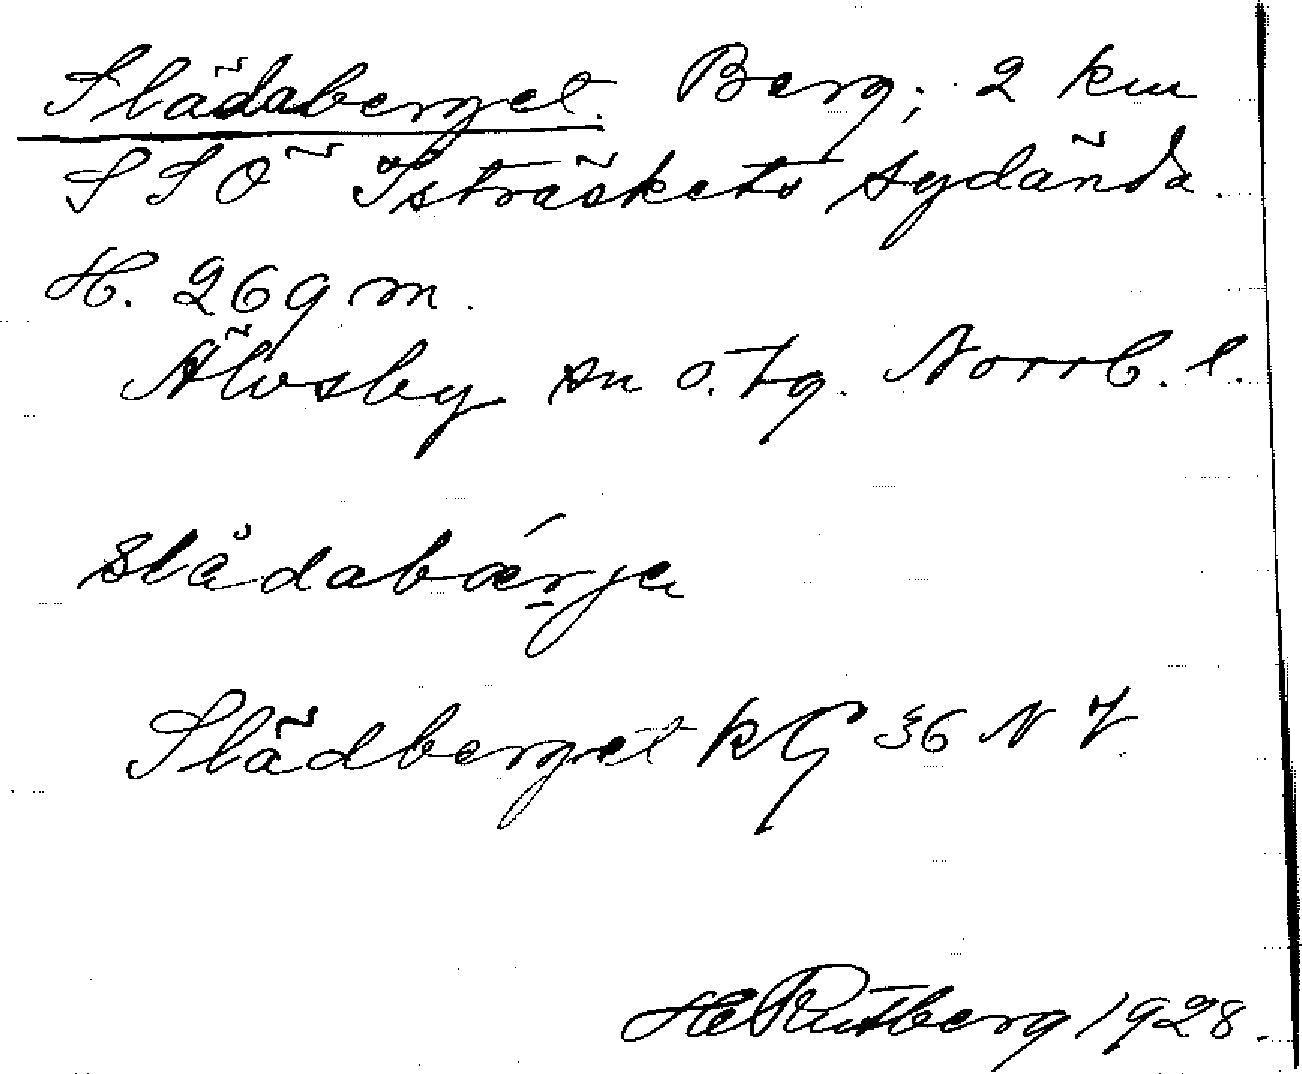 Slädaberget. Berg; 2 km
SSÖ Isträskets sydända.
H. 269 m.
Älvsby sn o. tg. Norrb. l.
slådabǽrje
Slädberget kG 36 N V.
HRutberg 1928.